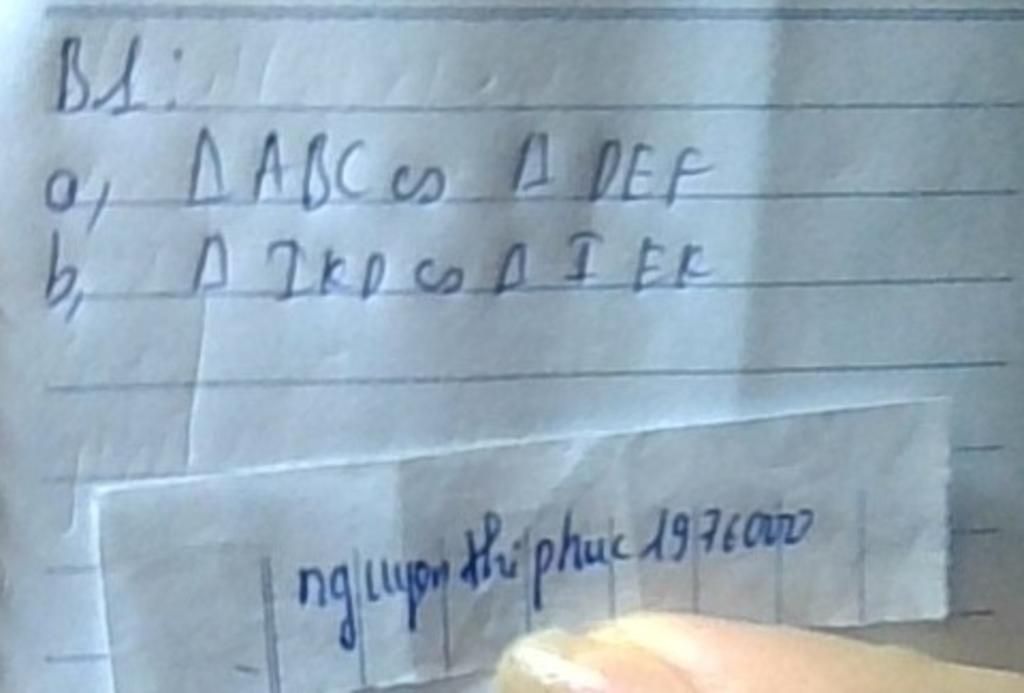 B1:
a, Δ ABC ∽ Δ DEF
b, Δ IKD ∽ Δ IEK
nguyen thi phuc 1976000